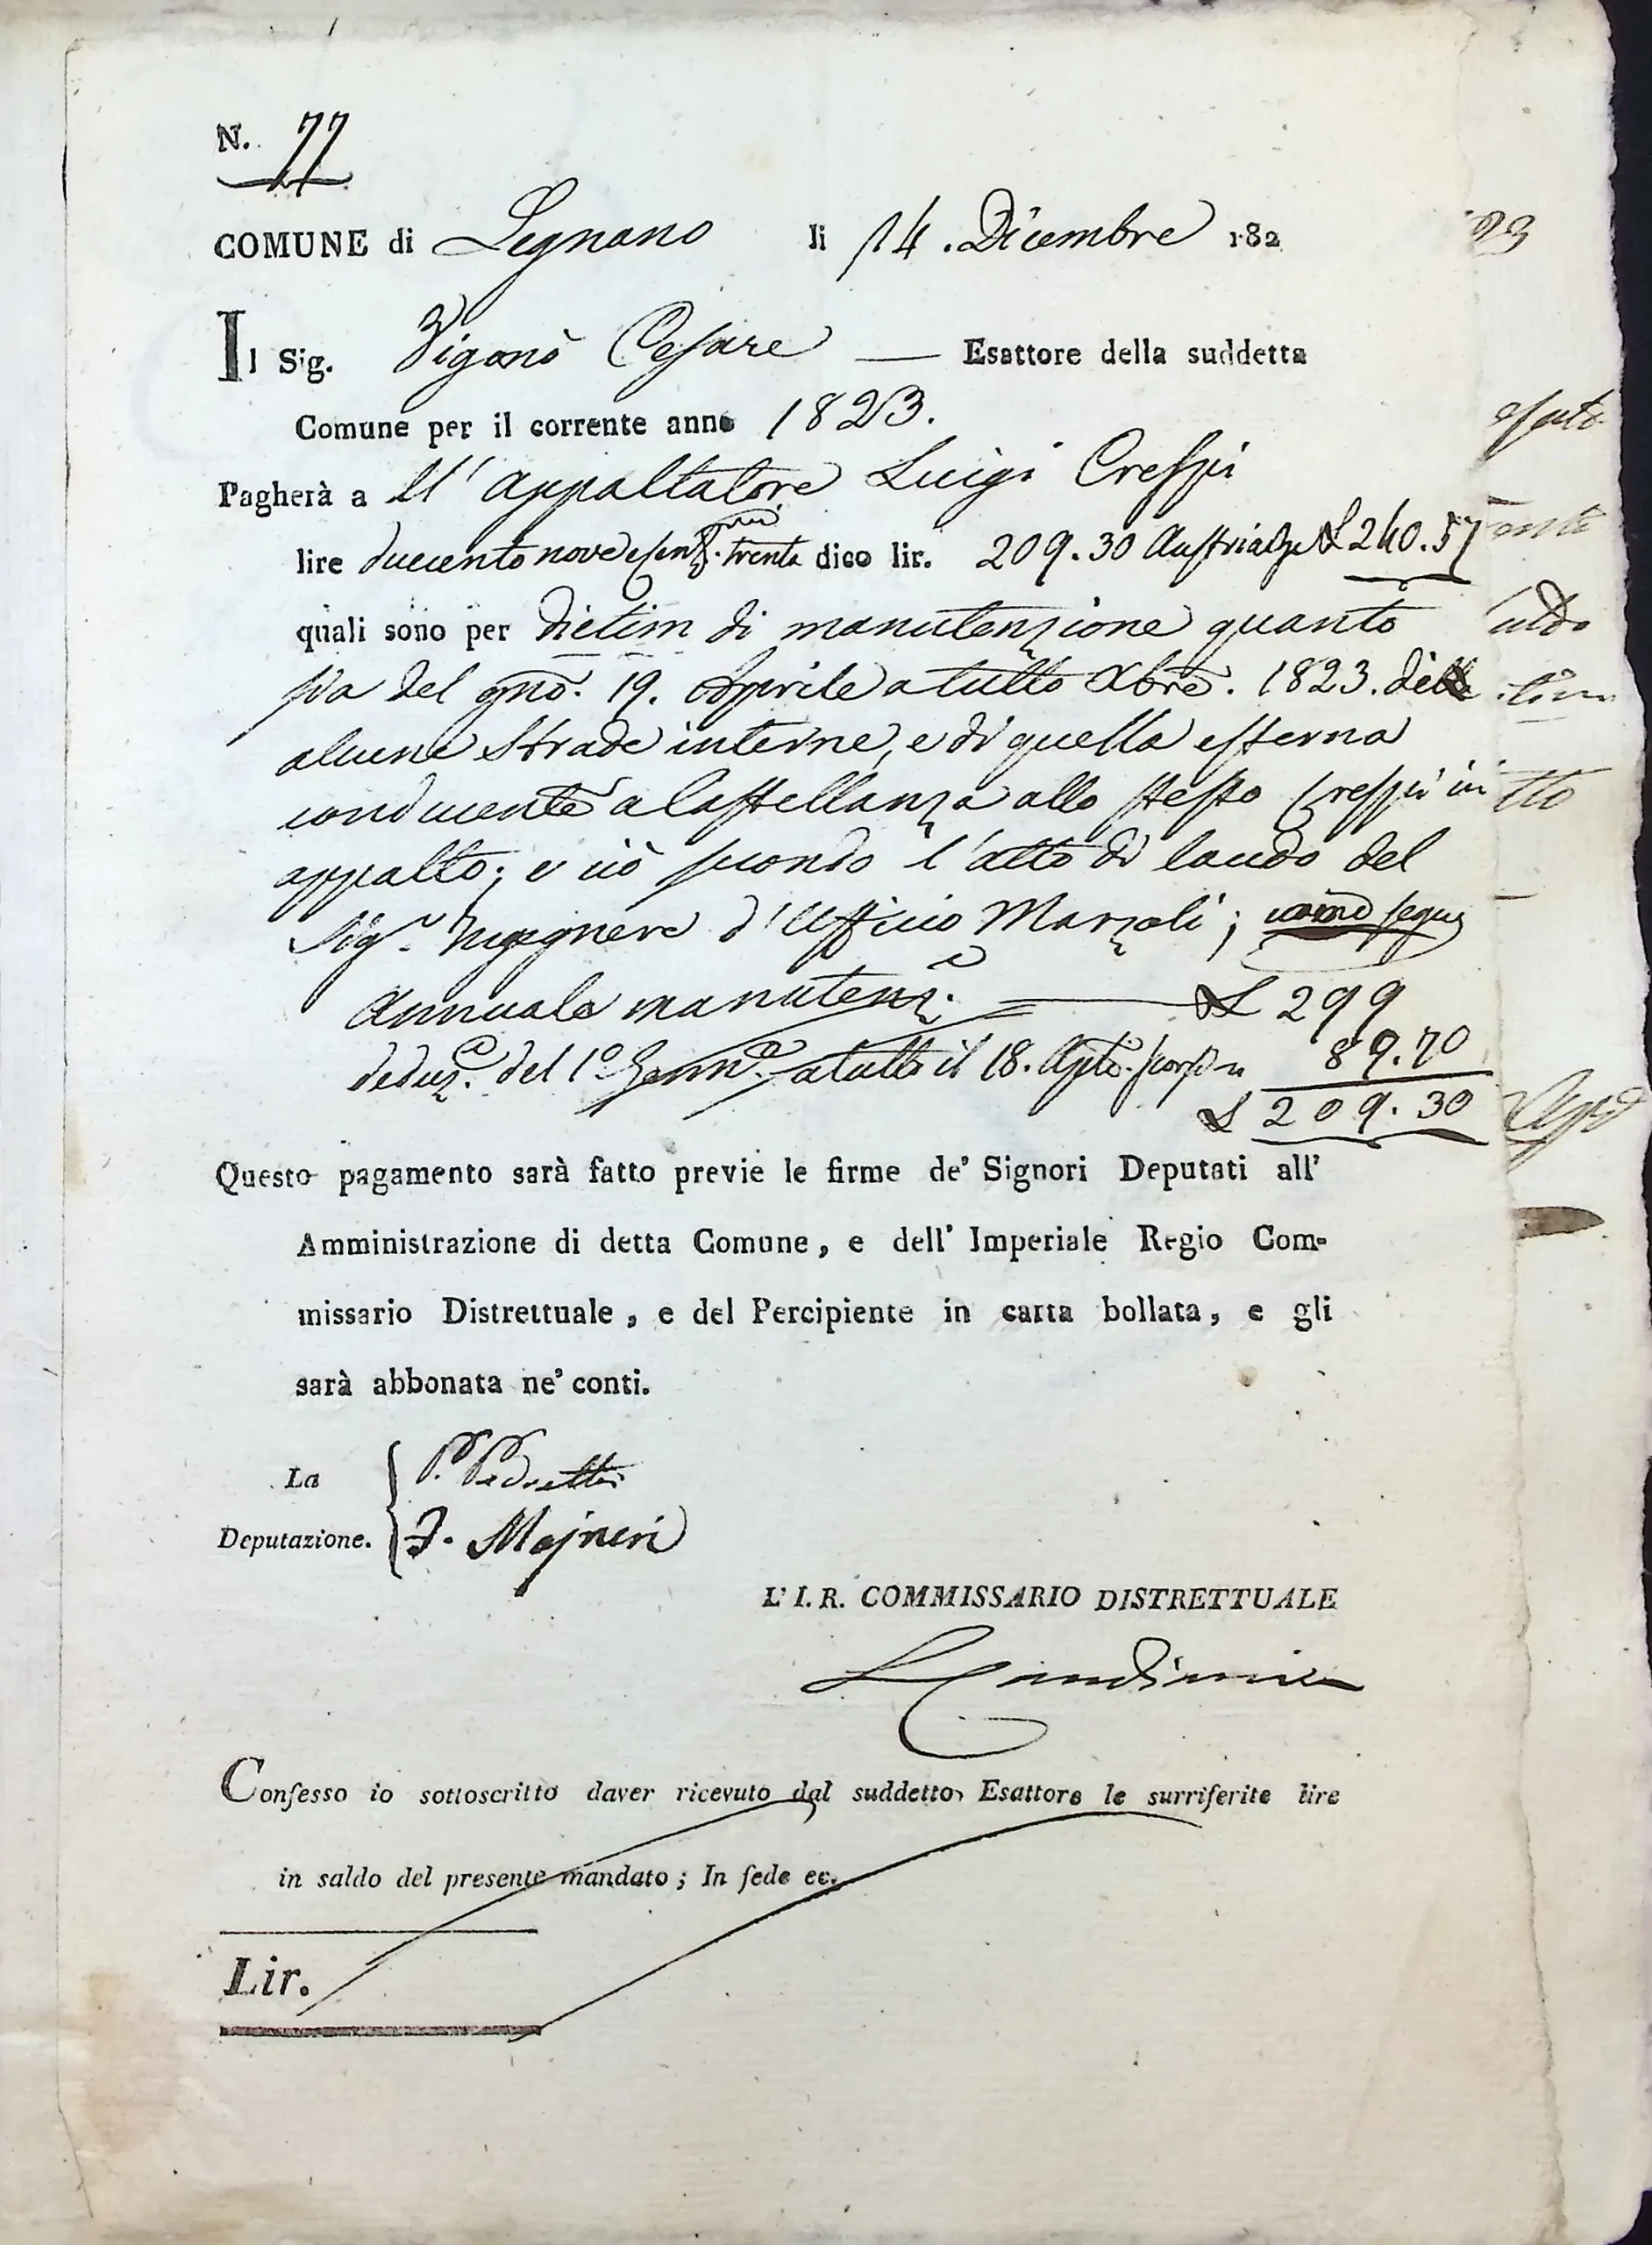 N. 77
COMUNE di Legnano li 14. Dicembre 182
23
Il Sig. Viganò Cesare — Esattore della suddetta
Comune per il corrente anno 1823.
Pagherà a ll' appaltatore Luigi Crespi
lire duecento nove e cent. trenta dico lir. 209.30 Austriache £ 240.57
quali sono per dietim di manutenzione quanto
sia del gno. 19. Aprile a tutto Xbre. 1823. di
alcune strade interne, e di quella esterna
conducente a Castellanza allo stesso Crespi in
appalto; e ciò secondo l'atto di laudo del
Sigr. Ingegnere d'Ufficio Marzoli; come segue
Annuale manutenz.e £ 299
deduz.e del 1.o Genn.o a tutto il 18. Aple. scorso 89.70
£ 209.30
Questo pagamento sarà fatto previe le firme de' Signori Deputati all'
Amministrazione di detta Comune, e dell' Imperiale Regio Com-
missario Distrettuale, e del Percipiente in carta bollata, e gli
sarà abbonata ne' conti.
La P. Pedretti
Deputazione. F. Majneri
L' I. R. COMMISSARIO DISTRETTUALE
Confesso io sottoscritto daver ricevuto dal suddetto Esattore le surriferite lire
in saldo del presente mandato; In fede ec.
Lir.